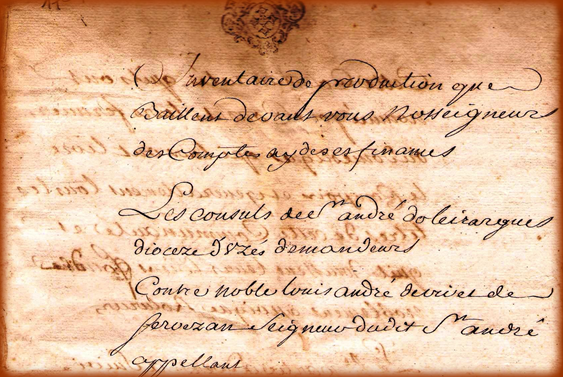 Inventaire de production que
Baillent devant vous Nosseigneurs
des Comptes aydes et finances
Les consuls de St andré doleirargues
dioceze d'uzés demandeurs
Contre noble louis andré de
Seigneur dudit St andré
appellant